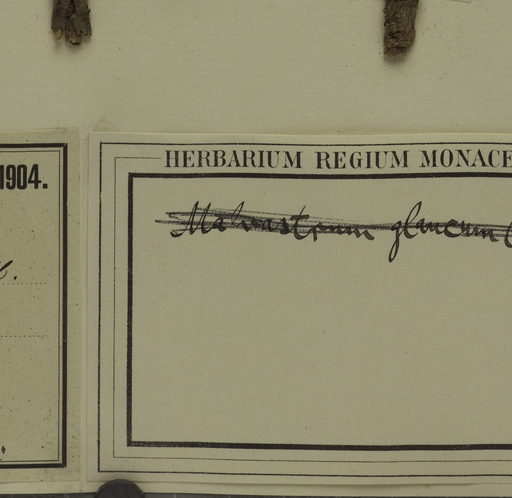 1904.
HERBARIUM REGIUM MONACE
Malvastrum glaucum (